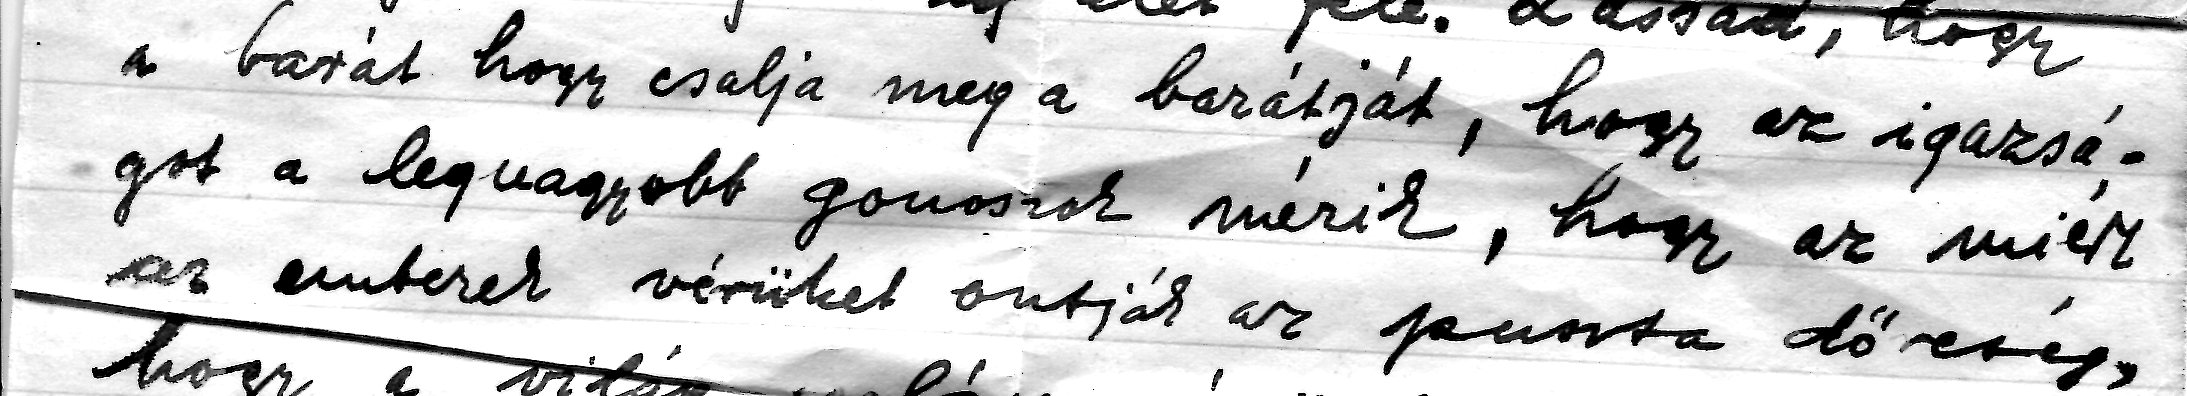 élet felé. Lássad, hogy
a barát hogy csalja meg a barátját, hogy az igazsá-
got a legnagyobb gonoszok mérik, hogy az miért
az emberek vérüket ontják az puszta dőreség,
hogy a világ